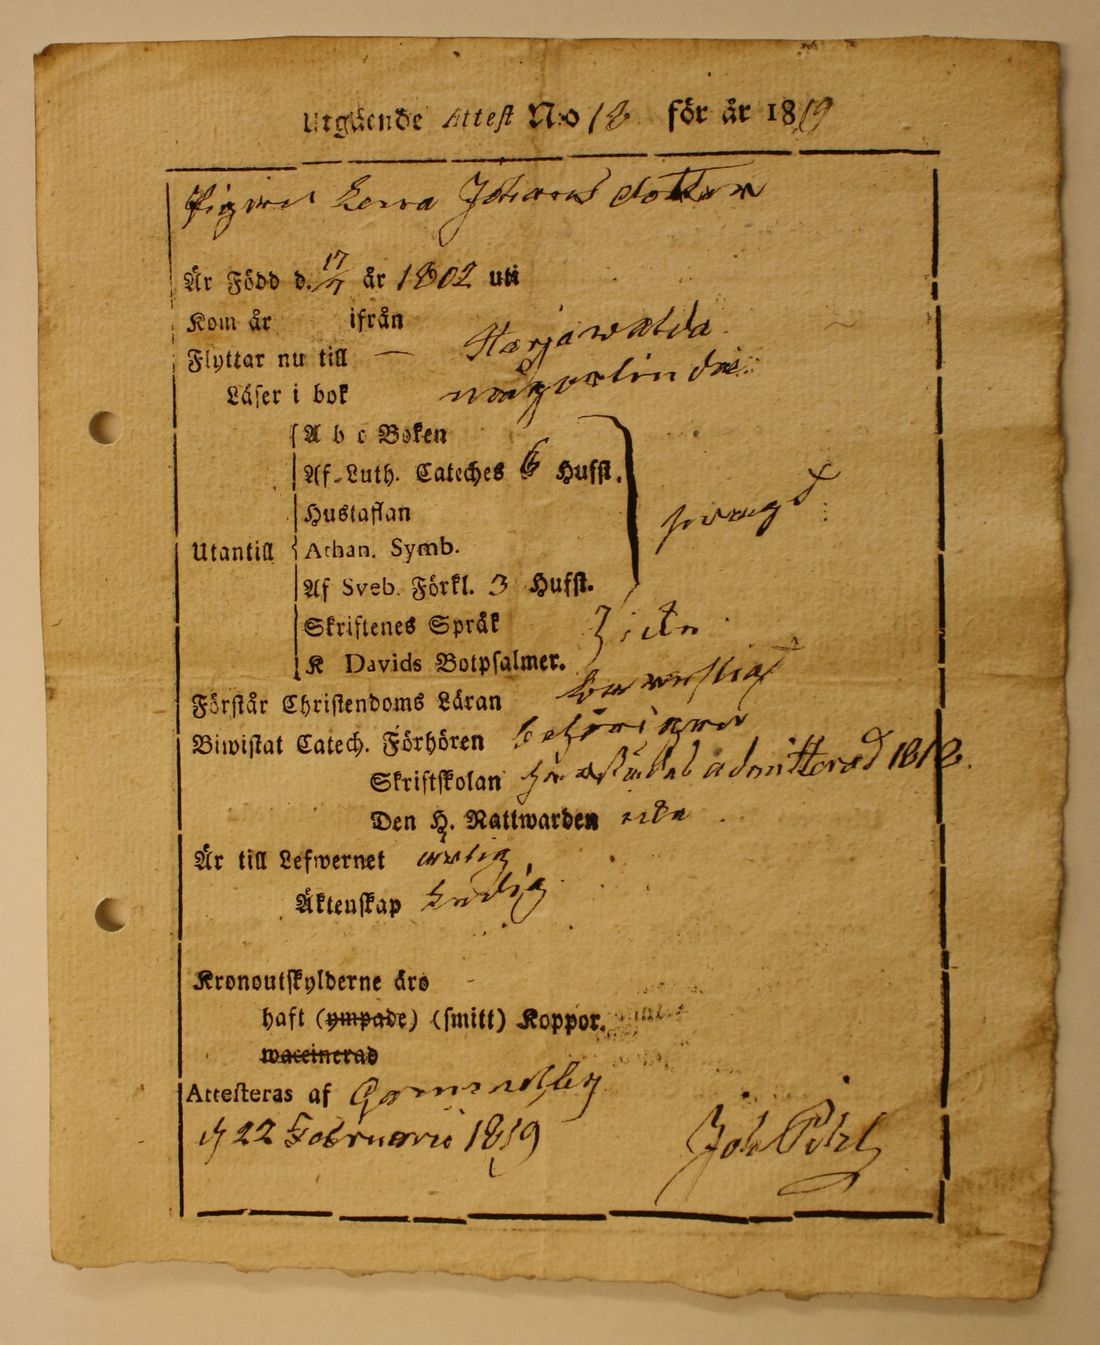 Utgående Attest N:o 18 för år 1819
Pigan Lena Johans dotter
Är Född d. 17/7 år 1802 uti
Kom år ifrån
Flyttar nu till — Harjawalda
Läser i bok någorlunda
A b c Boken
Af Luth. Cateches 6 Hufst.
Hustaflan
Utantill Athan. Symb.
svagt
Af Sveb. Förkl. 3 Hufst.
Skriftenes Språk
K Davids Botpsalmer.
Förstår Christendoms Läran
Biwistat Catech. Förhören
Skriftskolan admitterad 1818.
Den H. Nattwarden
Är till Lefwernet ärlig
Äktenskap Ledig
Kronoutskylderne äro
haft (ympade) (smitt) Koppor.
waccinerad
Attesteras af Gammelby
d 22 Februarii 1819
Joh